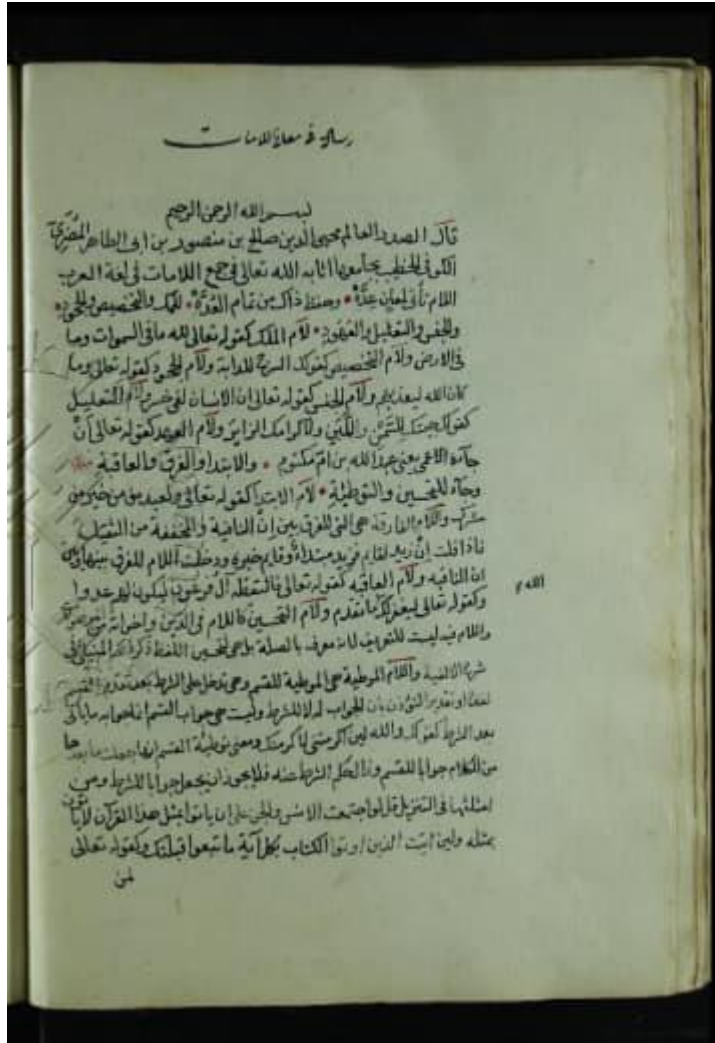 رسالة في معاني اللامات
بسم الله الرحمن الرحيم
قال الصدر العالم محيى الدين صالح بن منصور بن ابى الطاهر المُضَرِىّ
الكوفى الخطيب بجامعها اثابه الله تعالى فى جمع اللامات فى لغة العرب
اللام تأتى لمعان عدّة وحفظ ذاك من تمام العُدّة للملك والتخصيص والجحود
والجنس والتعليل والعهود لام الملك كقوله تعالى لله مافى السموات وما
فى الارض ولام التخصيص كقولك السرج للدابة ولام الجحود كقوله تعالى وما
كان الله ليعذبهم ولام الجنس كقوله تعالى ان الانسان لفى خسر ولام التعليل
كقولك جئتك للسَّمْنِ واللَّبَنِ ولاكرامك الزايق ولام العهد كقوله تعالى أنْ
جاءه الاعمى يعنى عبدالله بن ام مكتوم والابتدا والفرق والعاقبة
وجاء للتحسين والتوطئة لام الابتدا كقوله تعالى ولعبد مؤمن خير من
مشرك واللام الفارقة هى التى للفرق بين إن النافية والمخففة من الثقيلة
فاذا قلت إنْ زيد لقايم فزيد مبتدا وقايم خبره ودخلت اللام للفرق بينها وبين
ان النافيه ولام العاقبه كقوله تعالى فالتقطه آل فرعون ليكون لهم عدوا
الله
وكقوله تعالى ليغفر لك ما تقدم ولام التحسين كاللام فى الذين واخواته
واللام فيه ليست للتعريف لانه معرف بالصلة بل هى لتحسين اللفظ ذكر
شرح الالفية واللام الموطية هى الموطية للقسم وهى تدخل على الشرط بعد تقدم القسم
لفظا او تقديرا لتؤذن بان الجواب له لا للشرط وليست هى جواب القسم انما جوابه ما ياتى
بعد الشرط كقولك والله لين اكرمتنى لاكرمنك ومعنى توطئة القسم انها جعلت ما بعدها
من الكلام جوابا للقسم وذا الحكم الشرط عنه فلا يجوز ان يجعل جوابا للشرط ومن
امثلتها فى التنزيل قل لين اجتمعت الانس والجن على ان ياتوا بمثل هذا القرآن لا ياتون
بمثله ولين اتيت الذين اوتوا الكتاب بكل آية ما تبعوا قبلتك وكقوله تعالى
لمن